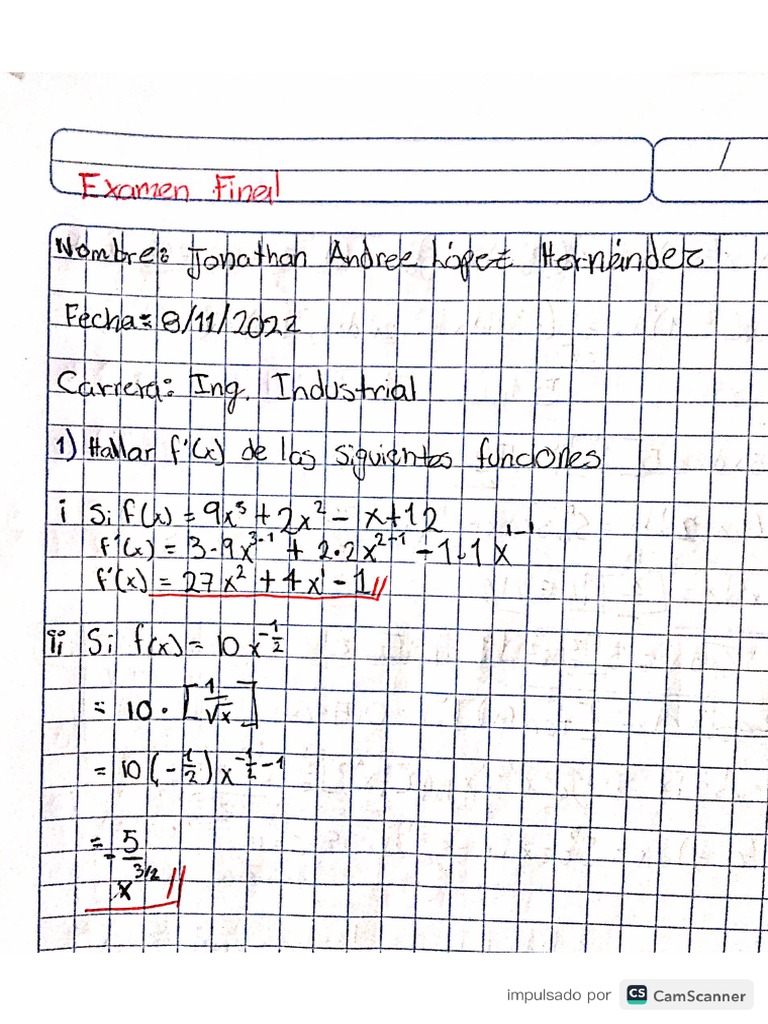 /
Examen Final
Nombre: Jonathan Andree López Hernández
Fecha: 8/11/2022
Carrera: Ing. Industrial
1) Hallar f'(x) de las siguientes funciones
i Si f(x) = 9x³ + 2x² - x + 12
f'(x) = 3·9x³⁻¹ + 2·2x²⁻¹ - 1·1x¹⁻¹
f'(x) = 27x² + 4x - 1//
ii Si f(x) = 10x^-1/2
= 10 · [1/√x]
= 10(-1/2)x^-1/2-1
= -5/x^3/2//
impulsado por CS CamScanner